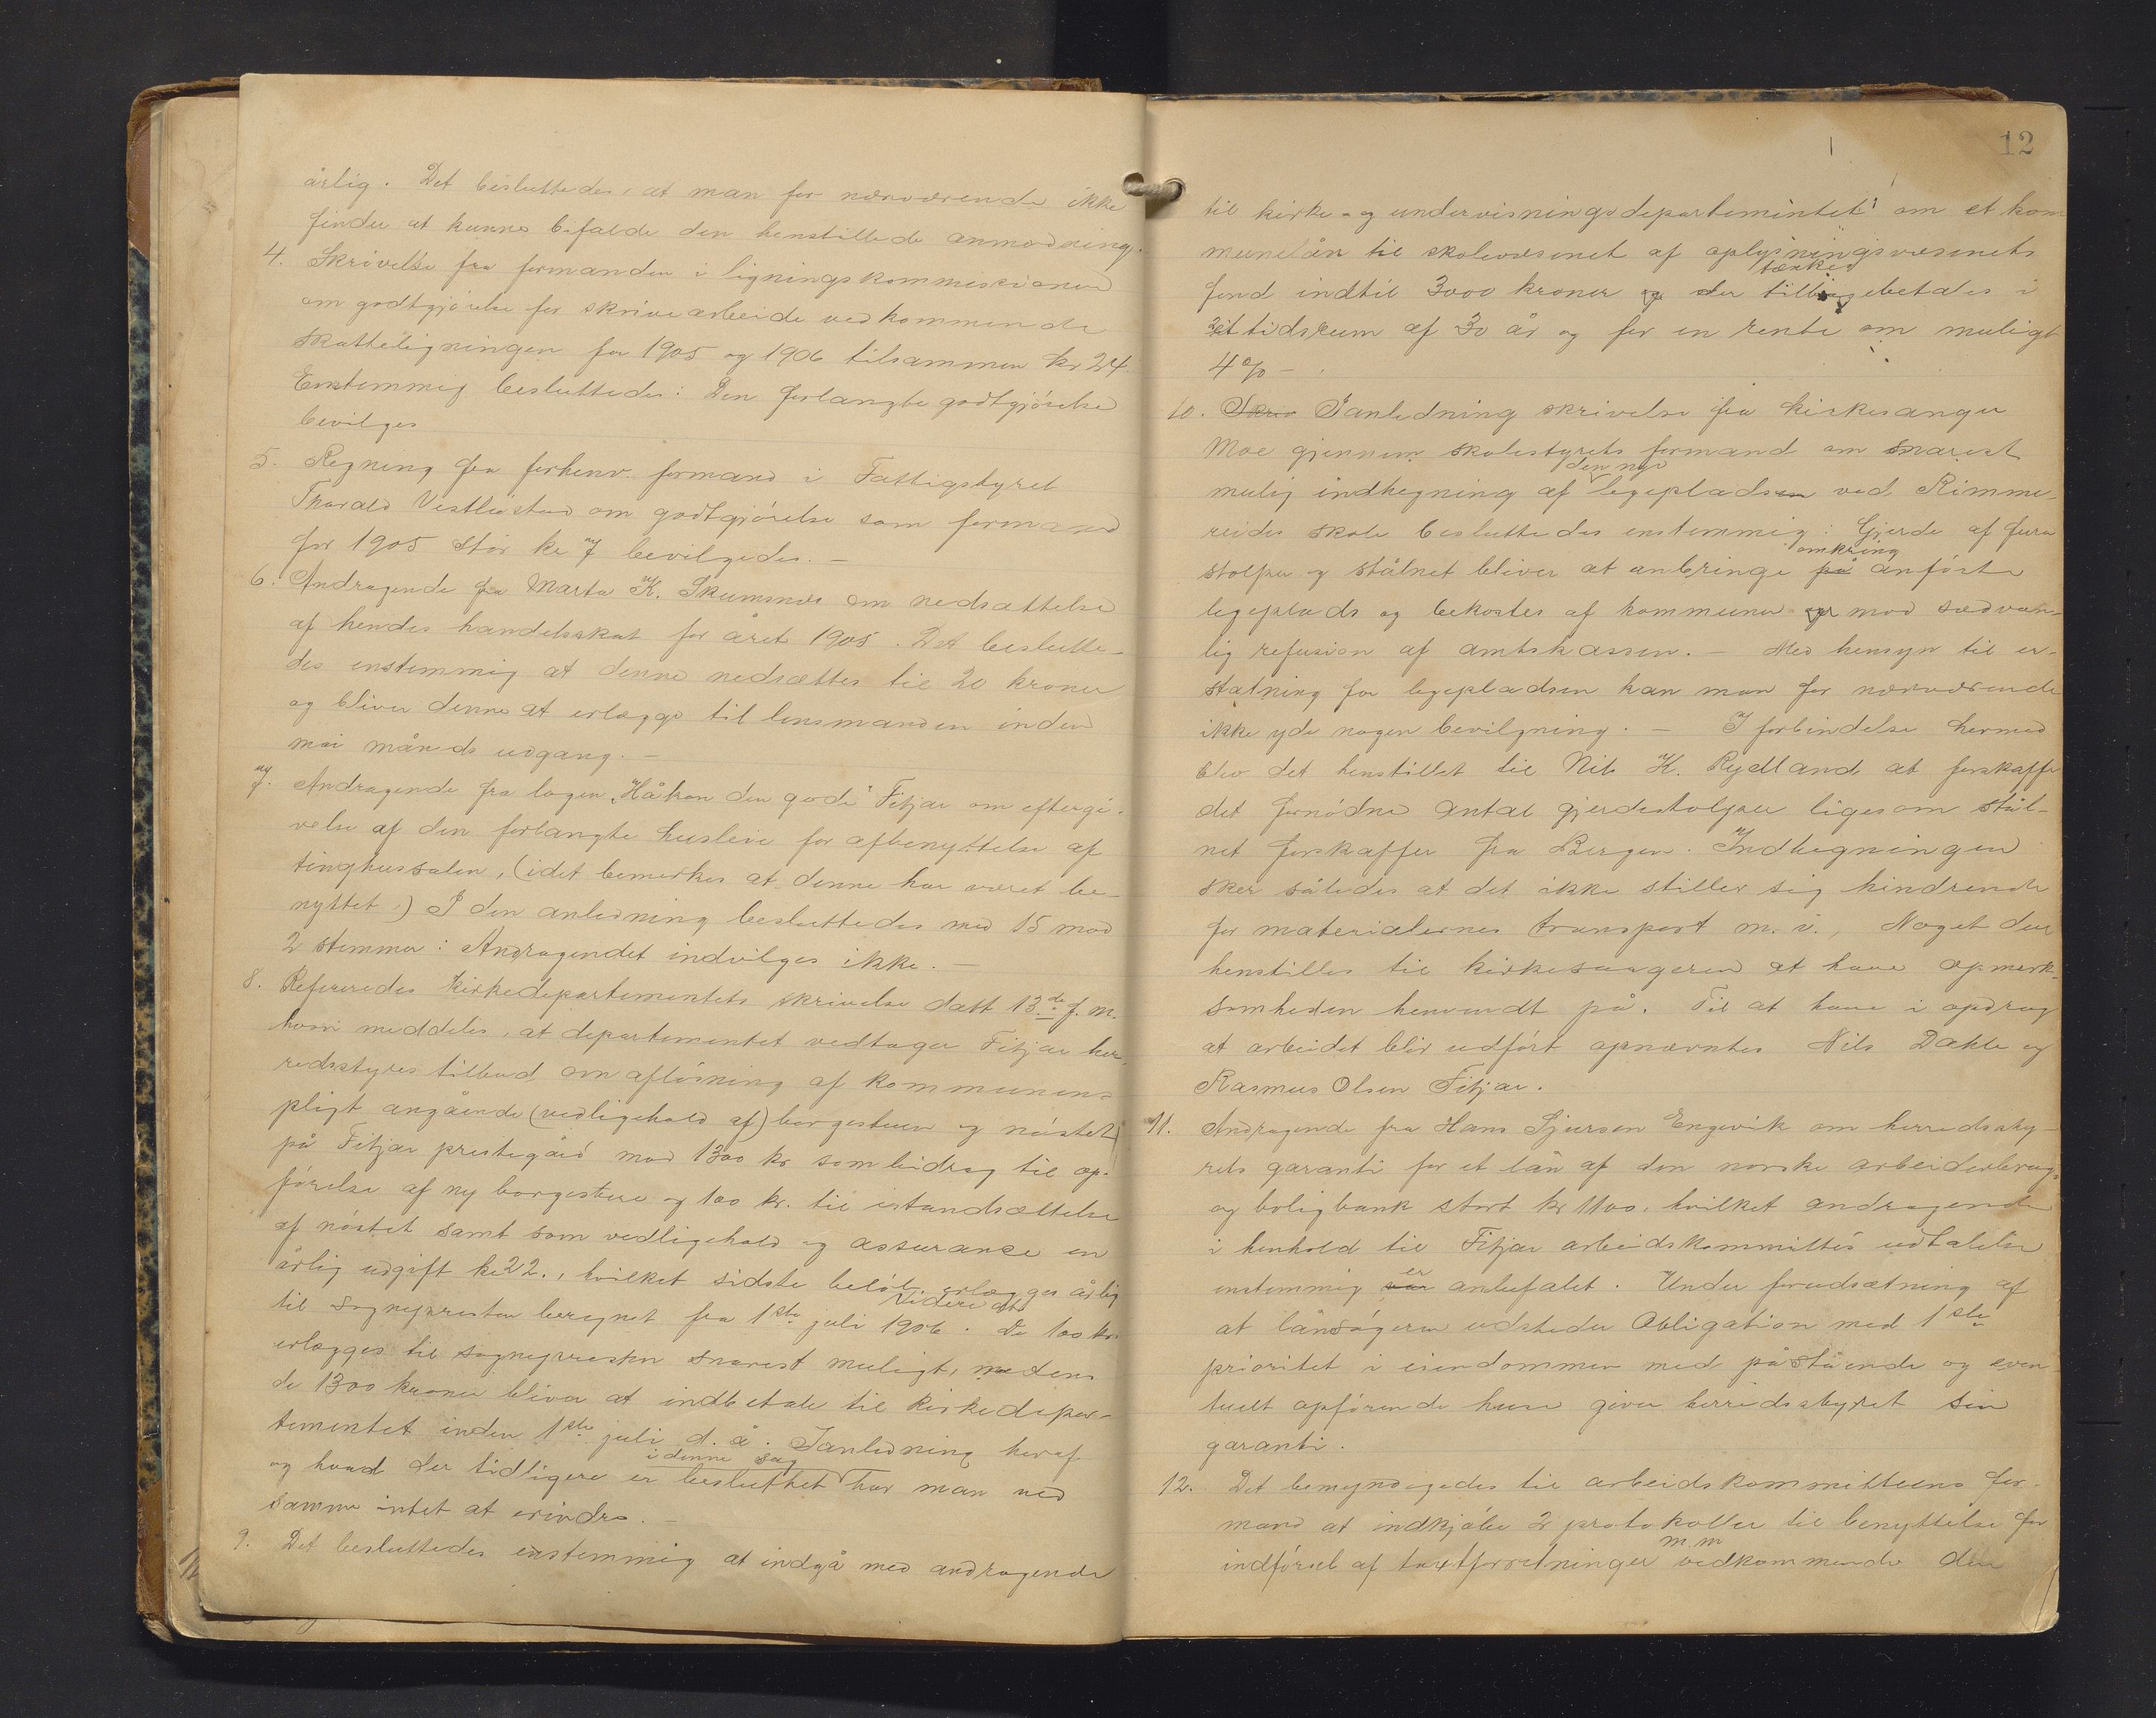 årlig. Det besluttedes, at man for nærværende ikke
finder at kunne bifalde den henstillede anmodning.
4. Skrivelse fra formanden i ligningskommissionen
om godtgjørelse for skrivearbeide vedkommende
skatteligningen for 1905 og 1906 tilsammen kr 24.
Enstemmig besluttedes: Den forlangte godtgjørelse
bevilges
5. Regning fra forhenv. formand i Fattigstyret
Thorald Vestbøstad om godtgjørelse som formand
for 1905 stor kr 7 bevilgedes. –
6. Andragende fra Marta K. Skumsnes om nedsættelse
af hendes handelsskat for året 1905. Det beslutte-
des enstemmig at denne nedsættes til 20 kroner
og bliver denne at erlægge til lensmanden inden
mai måneds udgang. –
7. Andragende fra logen „Håkon den gode" Fitjar om eftergi-
velse af den forlangte husleie for afbenyttelse af
tinghussalen, (idet bemerkes at denne har været be-
nyttet.) I den anledning besluttedes med 15 mod
2 stemmer: Andragendet indvilges ikke. –
8. Refereredes Kirkedepartementets skrivelse datt 13de f. m.
hvori meddeles, at departementet vedtager Fitjar her-
redsstyres tilbud om afløsning af kommunens
pligt angående (vedligehold af) borgestuen og nøstet
på Fitjar prestegård mod 1300 kr som bidrag til op-
førelse af ny borgestue og 100 kr. til istandsættelse
af nøstet samt som vedligehold og assurance en
årlig udgift kr 22., hvilket sidste beløb erlægges årlig
til sognepresten beregnet fra 1ste juli 1906. Videre at De 100 kr.
erlægges til sognepresten snarest muligt, medens
de 1300 kroner bliver at indbetale til Kirkedepar-
tementet inden 1ste juli d. å. Ianledning heraf
og hvad der tidligere er besluttet i denne sag har man ved
samme intet at erindre. –
9. Det besluttedes enstemmig at indgå med andragende
12
til kirke- og undervisningsdepartementet om et kom
munelån til skolevæsenet af oplysningsvæsenets
fond indtil 3000 kroner og der tænkes tilbagebetales i
et tidsrum af 30 år og for en rente om muligt
4 % –
10. Skriv Ianledning skrivelse fra kirkesanger
Moe gjennem skolestyrets formand om snarest
mulig indhegning af den nye legepladsen ved Rimme-
reides skole besluttedes enstemmig: Gjerde af furu
stolper og stålnet bliver at anbringe på omkring anførte
legeplads og bekostes af kommunen og mod sædvan-
lig refusion af amtskassen. – Med hensyn til er-
statning for legepladsen kan man for nærværende
ikke yde nogen bevilgning. – I forbindelse hermed
blev det henstillet til Nils K. Rydland at forskaffe
det fornødne antal gjerdestolper ligesom stål-
net forskaffes fra Bergen. Indhegningen
sker således at det ikke stiller sig hindrende
for materialernes transport m. v., Noget der
henstilles til kirkesangeren at have opmerk-
somheden henvendt på. Til at have i opdrag
at arbeidet blir udført opnævntes Nils Dahle og
Rasmus Olsen Fitjar.
11. Andragende fra Hans Sjursen Engevik om herredssty-
rets garanti for et lån af den norske arbeiderbrug-
og boligbank stort kr 1100, hvilket andragende
i henhold til Fitjar arbeidskommittés udtalelse
enstemmig var er anbefalet. Under forudsætning af
at lånsøgeren udsteder Obligation med 1ste
prioritet i eiendommen med påstående og even
tuelt opførende huse giver herredsstyret sin
garanti.
12. Det bemyndigedes til arbeidskommitteens for-
mand at indkjøbe 2 protokoller til benyttelse for
indførsel af taxtforretninger m.m vedkommende den